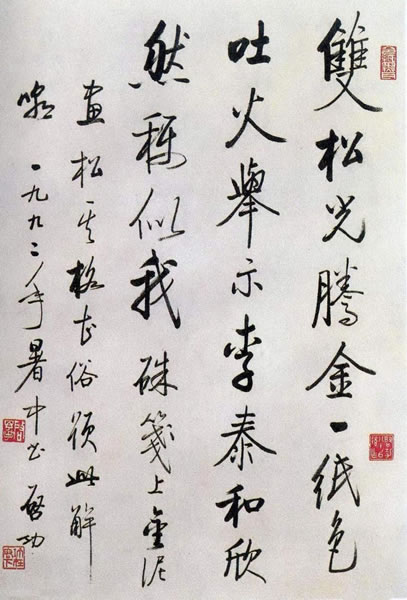 雙松光騰金一紙色
吐火舉示李泰和欣
然稱似我硃箋上金泥
畫松其格俗此解
嘲一九九二年暑中書啓功